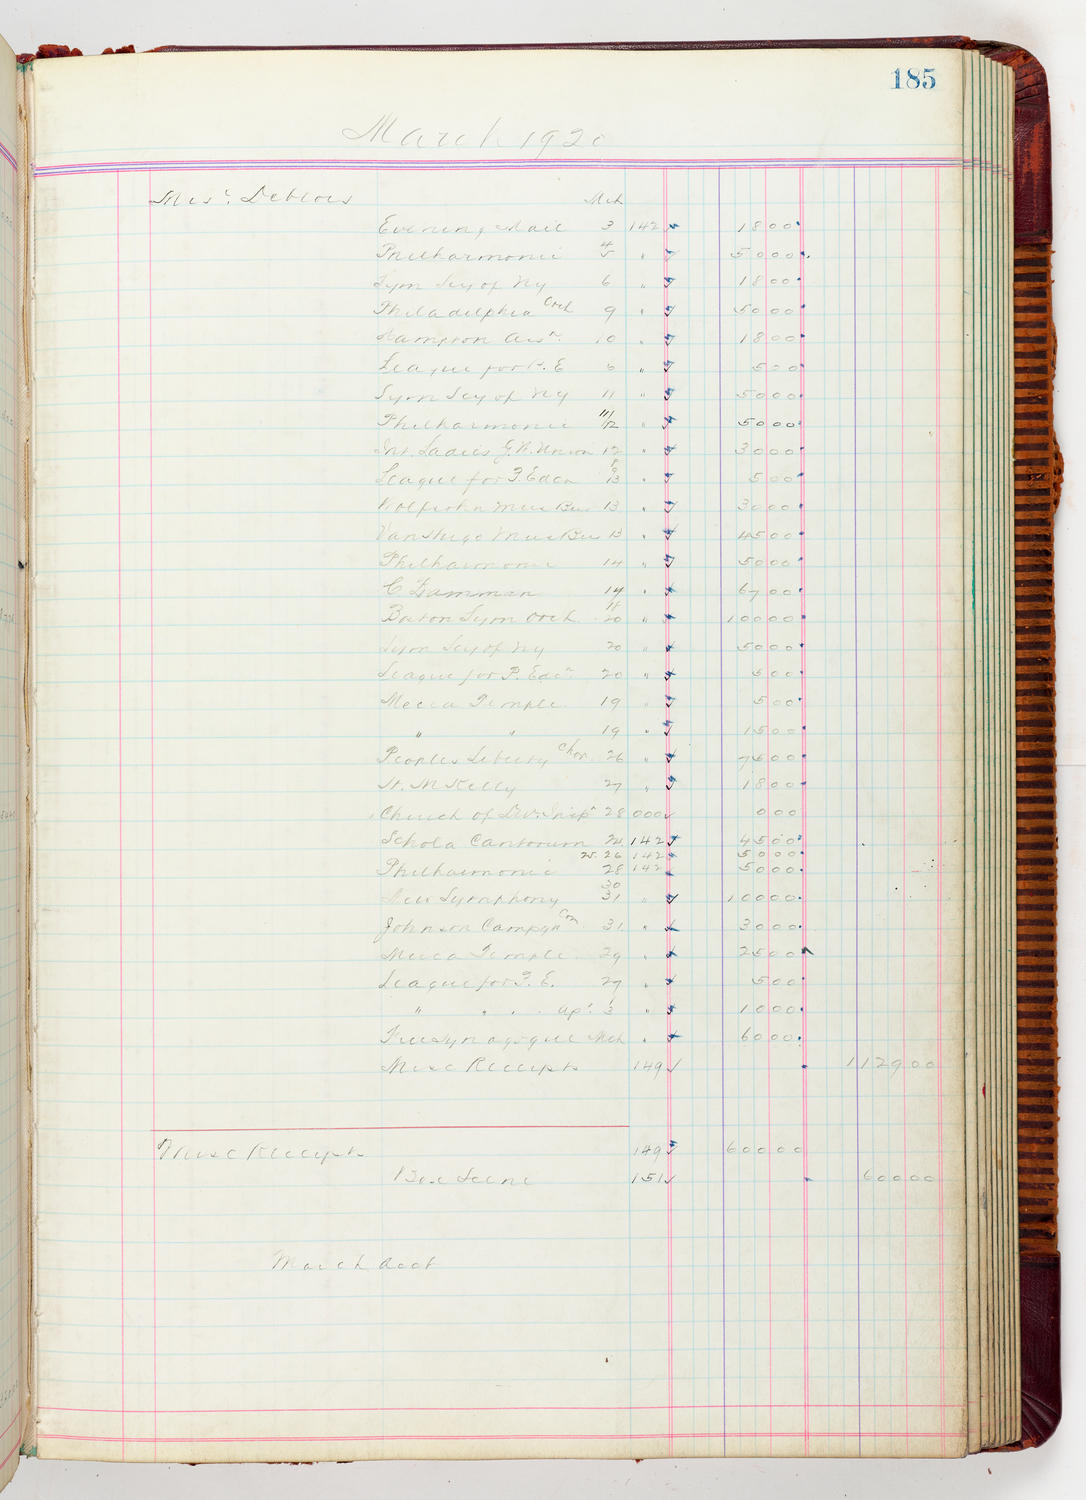 185
March 1920
Misc. Debtors Mch
Evening Mail 3 142 18 00
Philharmonic 4/5 " 50 00
Sym Scy of Ny 6 " 18 00
Philadelphia Orch 9 " 50 00
Hampton Assn. 10 " 18 00
League for P. E 6 " 5 00
Sym Scy of Ny 11 " 50 00
Philharmonic 11/12 " 50 00
Int. Ladies G. W. Union 12 " 30 00
League for P. Educ 13 " 5 00
Wolfsohn Mus Bu 13 " 30 00
Van Hugo Mus Bu 13 " 45 00
Philharmonic 14 " 50 00
C 14 " 67 00
Boston Sym Orch. 20 " 100 00
Sym Scy of Ny 20 " 50 00
League for P. Edu. 20 " 5 00
Mecca Temple 19 " 5 00
" " 19 " 15 00
Peoples Liberty Chor. 26 " 00
H. M Kelly 27 " 18 00
Church of Div. 28 000 0 00
Schola Cantorum 142 45 00
25. 26 142 50 00
Philharmonic 28 142 50 00
30
New Symphony 31 " 100 00
Johnson Campgn Com 31 " 30 00
Mecca Temple 29 " 25 00
League for P. E. 27 " 5 00
" " " Apr. 3 " 10 00
Free Synagogue Mch " 60 00
Misc Receipts 149 1129 00
Misc Receipts 149 600 00
Box Scene 151 600 00
March Acct